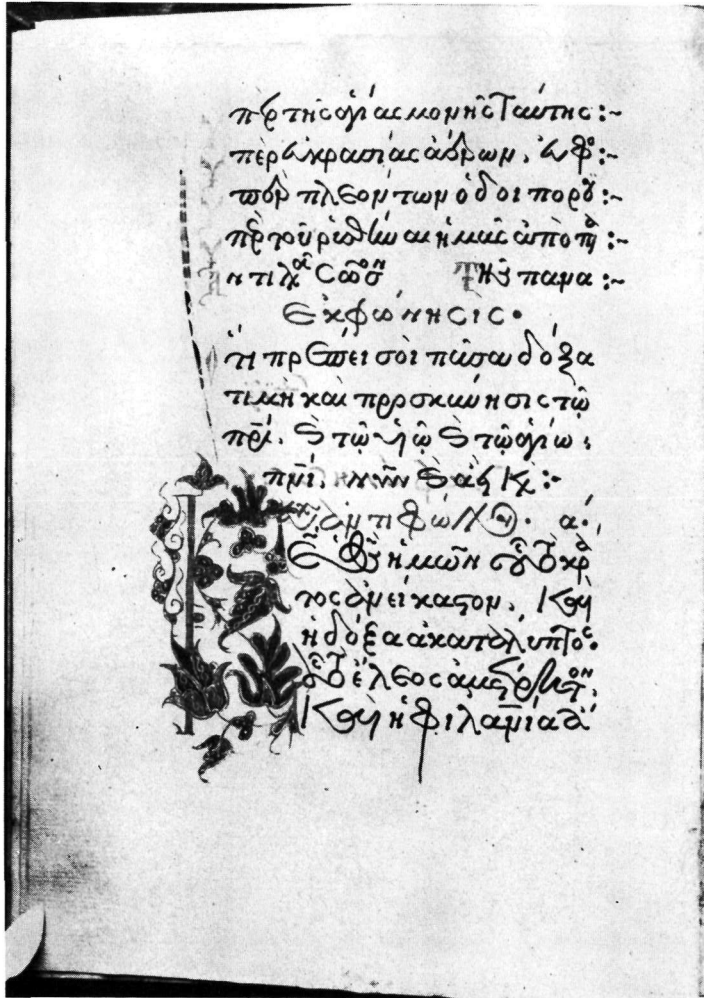 πὲρ τῆς ἁγίας μονῆς ταύτης :~
πὲρ εὐκρασίας ἀέρων. εὐφ :~
πὲρ πλεόντων ὁδοιπορού :~
πὲρ τοῦ ῥυσθῆναι ἡμᾶς ἀπὸ π :~
ντιλα σῶσ Τῆς πανα :~
Εκφώνησις.
τι πρέπει σοι πᾶσα δόξα
τιμὴ καὶ προσκύνησις τῶ
πρι. καὶ τῶ υἱῶ καὶ τῶ ἁγίω :
πνι. νῦν καὶ ἀεὶ κ :~
ἀντιφώνου α.
Κε ὁ θς ἡμῶν οὗ τὸ κρ
τος ἀνείκαστον. καὶ
ἡ δόξα ἀκατάληπτος.
οὗ τὸ ἔλεος ἀμέτρητον.
καὶ ἡ φιλανια ἀ